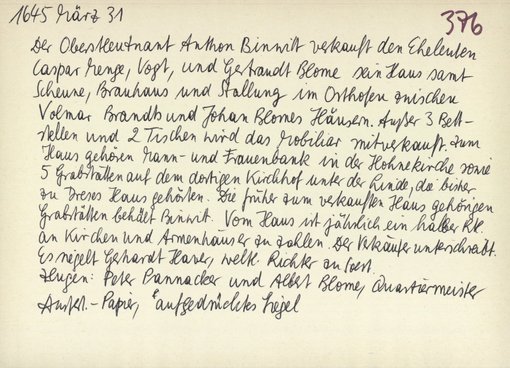 1645 März 31
376
Der Obestleutnant Anthon Binwilt verkauft den Eheleuten
Caspar Menge, Vogt, und Gertraudt Blome sein Haus samt
Scheune, Brauhaus und Stallung im Osthofen zwischen
Volmar Brandts und Johan Blomes Häusern. Außer 3 Bett-
stellen und 2 Tischen wird das Mobiliar mitverkauft. Zum
Haus gehören Mann- und Frauenbank in der Hohnekirche sowie
5 Grabstätten auf dem dortigen Kirchhof unter der Linde, die bisher
zu Dreses Haus gehörten. Die früher zum verkauften Haus gehörigen
Grabstätten behält Binwilt. Vom Haus ist jährlich ein halber Rt.
an Kirchen und Armenhäuser zu zahlen. Der Verkäufer unterschreibt.
Es siegelt Gerhardt Haver, weltl. Richter zu Soest.
Zeugen: Peter Prannacker und Albert Blome, Quartiermeister
Ausfert. - Papier, aufgedrücktes Siegel